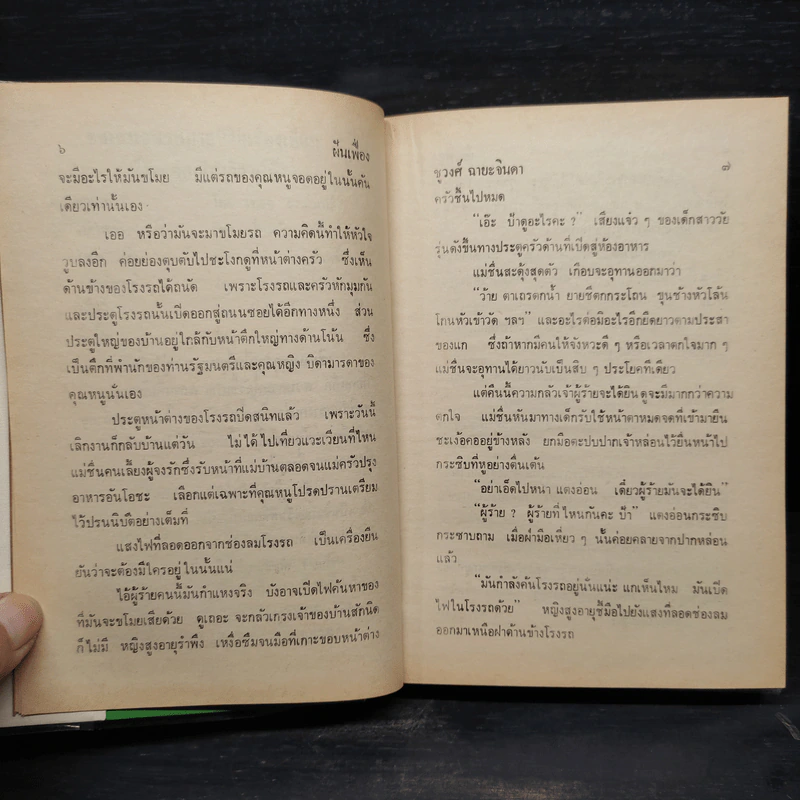 ๖
ฝันเฟื่อง
จะมีอะไรให้มันขโมย มีแต่รถของคุณหนูจอดอยู่ในนั้นคัน
เดียวเท่านั้นเอง
เออ หรือว่ามันจะมาขโมยรถ ความคิดนี้ทำให้หัวใจ
วูบลงอีก ค่อยย่องตุบตับไปชะโงกดูที่หน้าต่างครัว ซึ่งเห็น
ด้านข้างของโรงรถได้ถนัด เพราะโรงรถและครัวหักมุมกัน
และประตูโรงรถนั้นเปิดออกสู่ถนนซอยได้อีกทางหนึ่ง ส่วน
ประตูใหญ่ของบ้านอยู่ใกล้กับหน้าตึกใหญ่ทางด้านโน้น ซึ่ง
เป็นตึกที่พำนักของท่านรัฐมนตรีและคุณหญิง บิดามารดาของ
คุณหนูนั่นเอง
ประตูหน้าต่างของโรงรถปิดสนิทแล้ว เพราะวันนี้
เลิกงานก็กลับบ้านแต่วัน ไม่ได้ไปเที่ยวแวะเวียนที่ไหน
แม่ชื่นคนเลี้ยงผู้จงรักซึ่งรับหน้าที่แม่บ้านตลอดจนแม่ครัวปรุง
อาหารอันโอชะ เลือกแต่เฉพาะที่คุณหนูโปรดปรานเตรียม
ไว้ปรนนิบัติอย่างเต็มที่
แสงไฟที่ลอดออกจากช่องลมโรงรถ เป็นเครื่องยืน
ยันว่าจะต้องมีใครอยู่ในนั้นแน่
ไอ้ผู้ร้ายคนนี้มันกำแหงจริง บังอาจเปิดไฟค้นหาของ
ที่มันจะขโมยเสียด้วย ดูเถอะ จะกลัวเกรงเจ้าของบ้านสักนิด
ก็ไม่มี หญิงสูงอายุรำพึง เหงื่อซึมจนมือที่เกาะขอบหน้าต่าง
ชูวงศ์ ฉายะจินดา
๗
ครัวชื้นไปหมด
“เอ๊ะ ป้าดูอะไรคะ ?” เสียงแจ๋ว ๆ ของเด็กสาววัย
รุ่นดังขึ้นทางประตูครัวด้านที่เปิดสู่ห้องอาหาร
แม่ชื่นสะดุ้งสุดตัว เกือบจะอุทานออกมาว่า
“ว้าย ตาเถรตกน้ำ ยายชีตกกระโถน ขุนช้างหัวโล้น
โกนหัวเข้าวัด ฯลฯ” และอะไรต่อมิอะไรอีกยืดยาวตามประสา
ของแก ซึ่งถ้าหากมีคนให้จังหวะดี ๆ หรือเวลาตกใจมาก ๆ
แม่ชื่นจะอุทานได้ยาวนับเป็นสิบ ๆ ประโยคทีเดียว
แต่คืนนี้ความกลัวเจ้าผู้ร้ายจะได้ยินดูจะมีมากกว่าความ
ตกใจ แม่ชื่นหันมาทางเด็กรับใช้หน้าตาหมดจดที่เข้ามายืน
ชะเง้อคออยู่ข้างหลัง ยกมือตะปบปากเจ้าหล่อนไว้ยื่นหน้าไป
กระซิบที่หูอย่างตื่นเต้น
“อย่าเอ็ดไปหนา แตงอ่อน เดี๋ยวผู้ร้ายมันจะได้ยิน”
“ผู้ร้าย ? ผู้ร้ายที่ไหนกันคะ ป้า” แตงอ่อนกระซิบ
กระซาบถาม เมื่อฝ่ามือเหี่ยว ๆ นั้นค่อยคลายจากปากหล่อน
แล้ว
“มันกำลังค้นโรงรถอยู่นั่นแน่ะ แกเห็นไหม มันเปิด
ไฟในโรงรถด้วย” หญิงสูงอายุชี้มือไปยังแสงที่ลอดช่องลม
ออกมาเหนือฝาด้านข้างโรงรถ